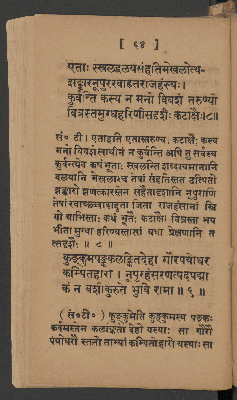 [ ६४ ]
एताः स्खलद्वलयसंहतिमेखलोत्थ-
झङ्कारनूपुररवाहृतराजहंस्यः ।
कुर्वन्ति कस्य न मनो विवशं तरुण्यो
वित्रस्तमुग्धहरिणीसदृशैः कटाक्षैः ॥८॥
सं० टी। एताइति एतास्तरुण्यः कटाक्षैः कस्य
मनो विवशंस्वाधीनं न कुर्वन्ति अपि तु सर्वस्य
कुर्वन्त्येव कथं भूताः स्खलन्ति शब्दायमानानि
वलयानि मेखलाश्च तेषां संहतिस्तत उत्थितो
झङ्कारो झणत्कारस्तेन सहितादृशानि नूपुराणि
तेषां रवाच्छब्दादाहृता जिता राजहंसानां स्त्रि
यो याभिस्ताः कथं भूतैः कटाक्षैः वित्रस्ता भय
भीता मुग्धा हरिण्यस्तासां यथा प्रेक्षणानि त
त्सदृशैः ॥ ८ ॥
कुङ्कुमपङ्ककलङ्कितदेहा गौरपयोधर
कम्पितहारा । नूपुरहंसरणत्पदपद्मा
कं न वशीकुरुते भुवि रामा ॥ ९ ॥
( सं० टी० ) कुङ्कुमेति कुङ्कुमस्य पङ्कः
कर्दमस्तेन कलङ्कितो देहो यस्याः सा गौरौ
पयोधरौ स्तनौ ताभ्यां कम्पितोहारो यस्याः सा